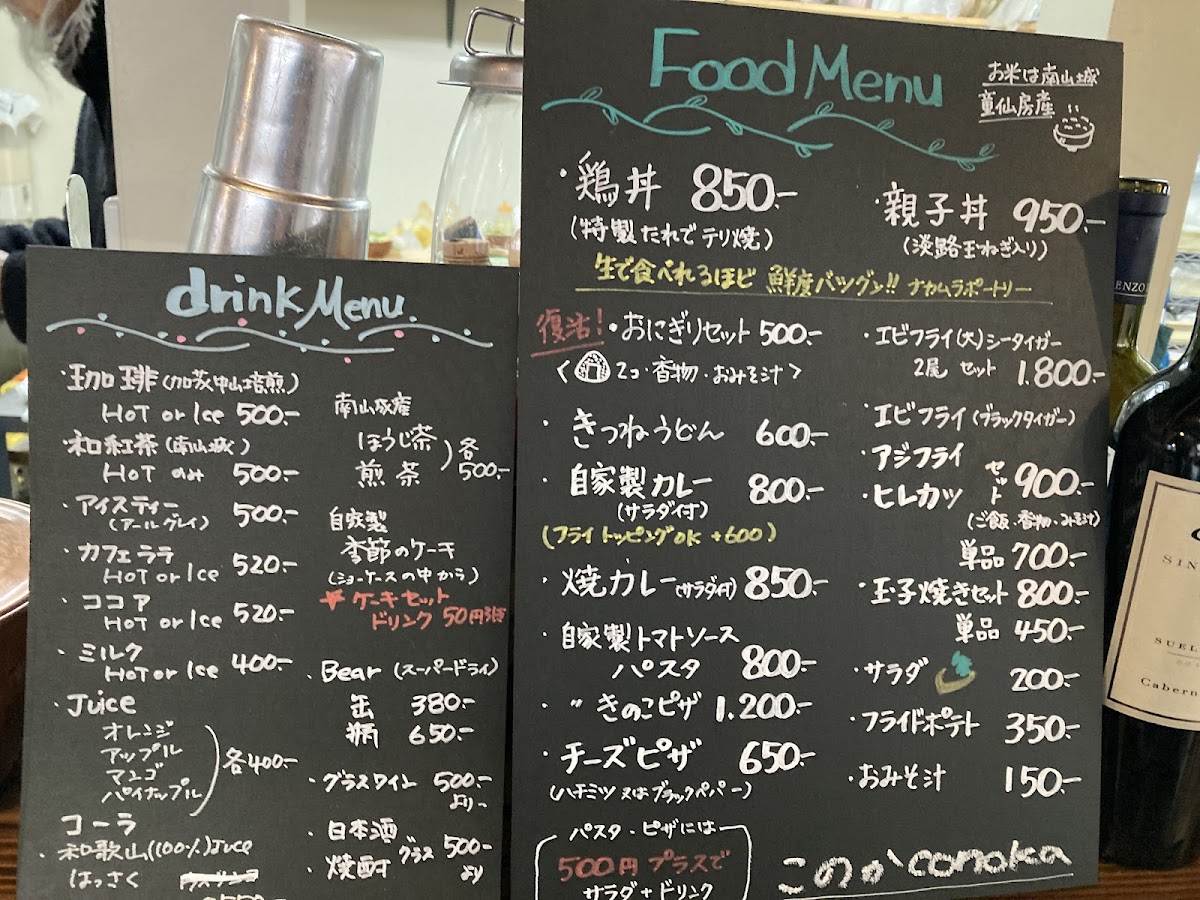 drink Menu
・珈琲(加茂中山焙煎)
HOT or Ice 500.-
・和紅茶(南山城)
HOT のみ 500.-
・アイスティー 500.-
(アールグレイ)
・カフェララ
HOT or Ice 520.-
・ココア
HOT or Ice 520.-
・ミルク
HOT or Ice 400.-
・Juice
オレンジ
アップル
マンゴ
パイナップル
各400.-
コーラ
・和歌山(100%)Juce
はっさく
南山城産
ほうじ茶
煎茶
各500.-
自家製
季節のケーキ
(ショーケースの中から)
ケーキセット
ドリンク 50円引き
・Bear (スーパードライ)
缶 380.-
瓶 650.-
・グラスワイン 500.-
より-
・日本酒
・焼酎
グラス 500.-
より
Food Menu
お米は南山城
童仙房産
・鶏丼 850.-
(特製たれでテリ焼)
・親子丼 950.-
(淡路玉ねぎ入り)
生で食べれるほど 鮮度バツグン!! ナカムラポートリー
復活!・おにぎりセット 500.-
< 2コ・香物・おみそ汁 >
・きつねうどん 600.-
・自家製カレー 800.-
(サラダ付)
(フライトッピングOK +600)
・焼カレー(サラダ付) 850.-
・自家製トマトソース
パスタ 800.-
・〃 きのこピザ 1.200.-
・チーズピザ 650.-
(ハチミツ又はブラックペパー)
パスタ・ピザには
500円プラスで
サラダ+ドリンク
・エビフライ(大)シータイガー
2尾 セット 1.800.-
・エビフライ(ブラックタイガー)
・アジフライ
・ヒレカツ
セット 900.-
(ご飯・香物・みそ汁)
単品 700.-
・玉子焼きセット 800.-
単品 450.-
・サラダ 200.-
・フライドポテト 350.-
・おみそ汁 150.-
このか conoka
ENZO
SIN
SUEL
Cabern